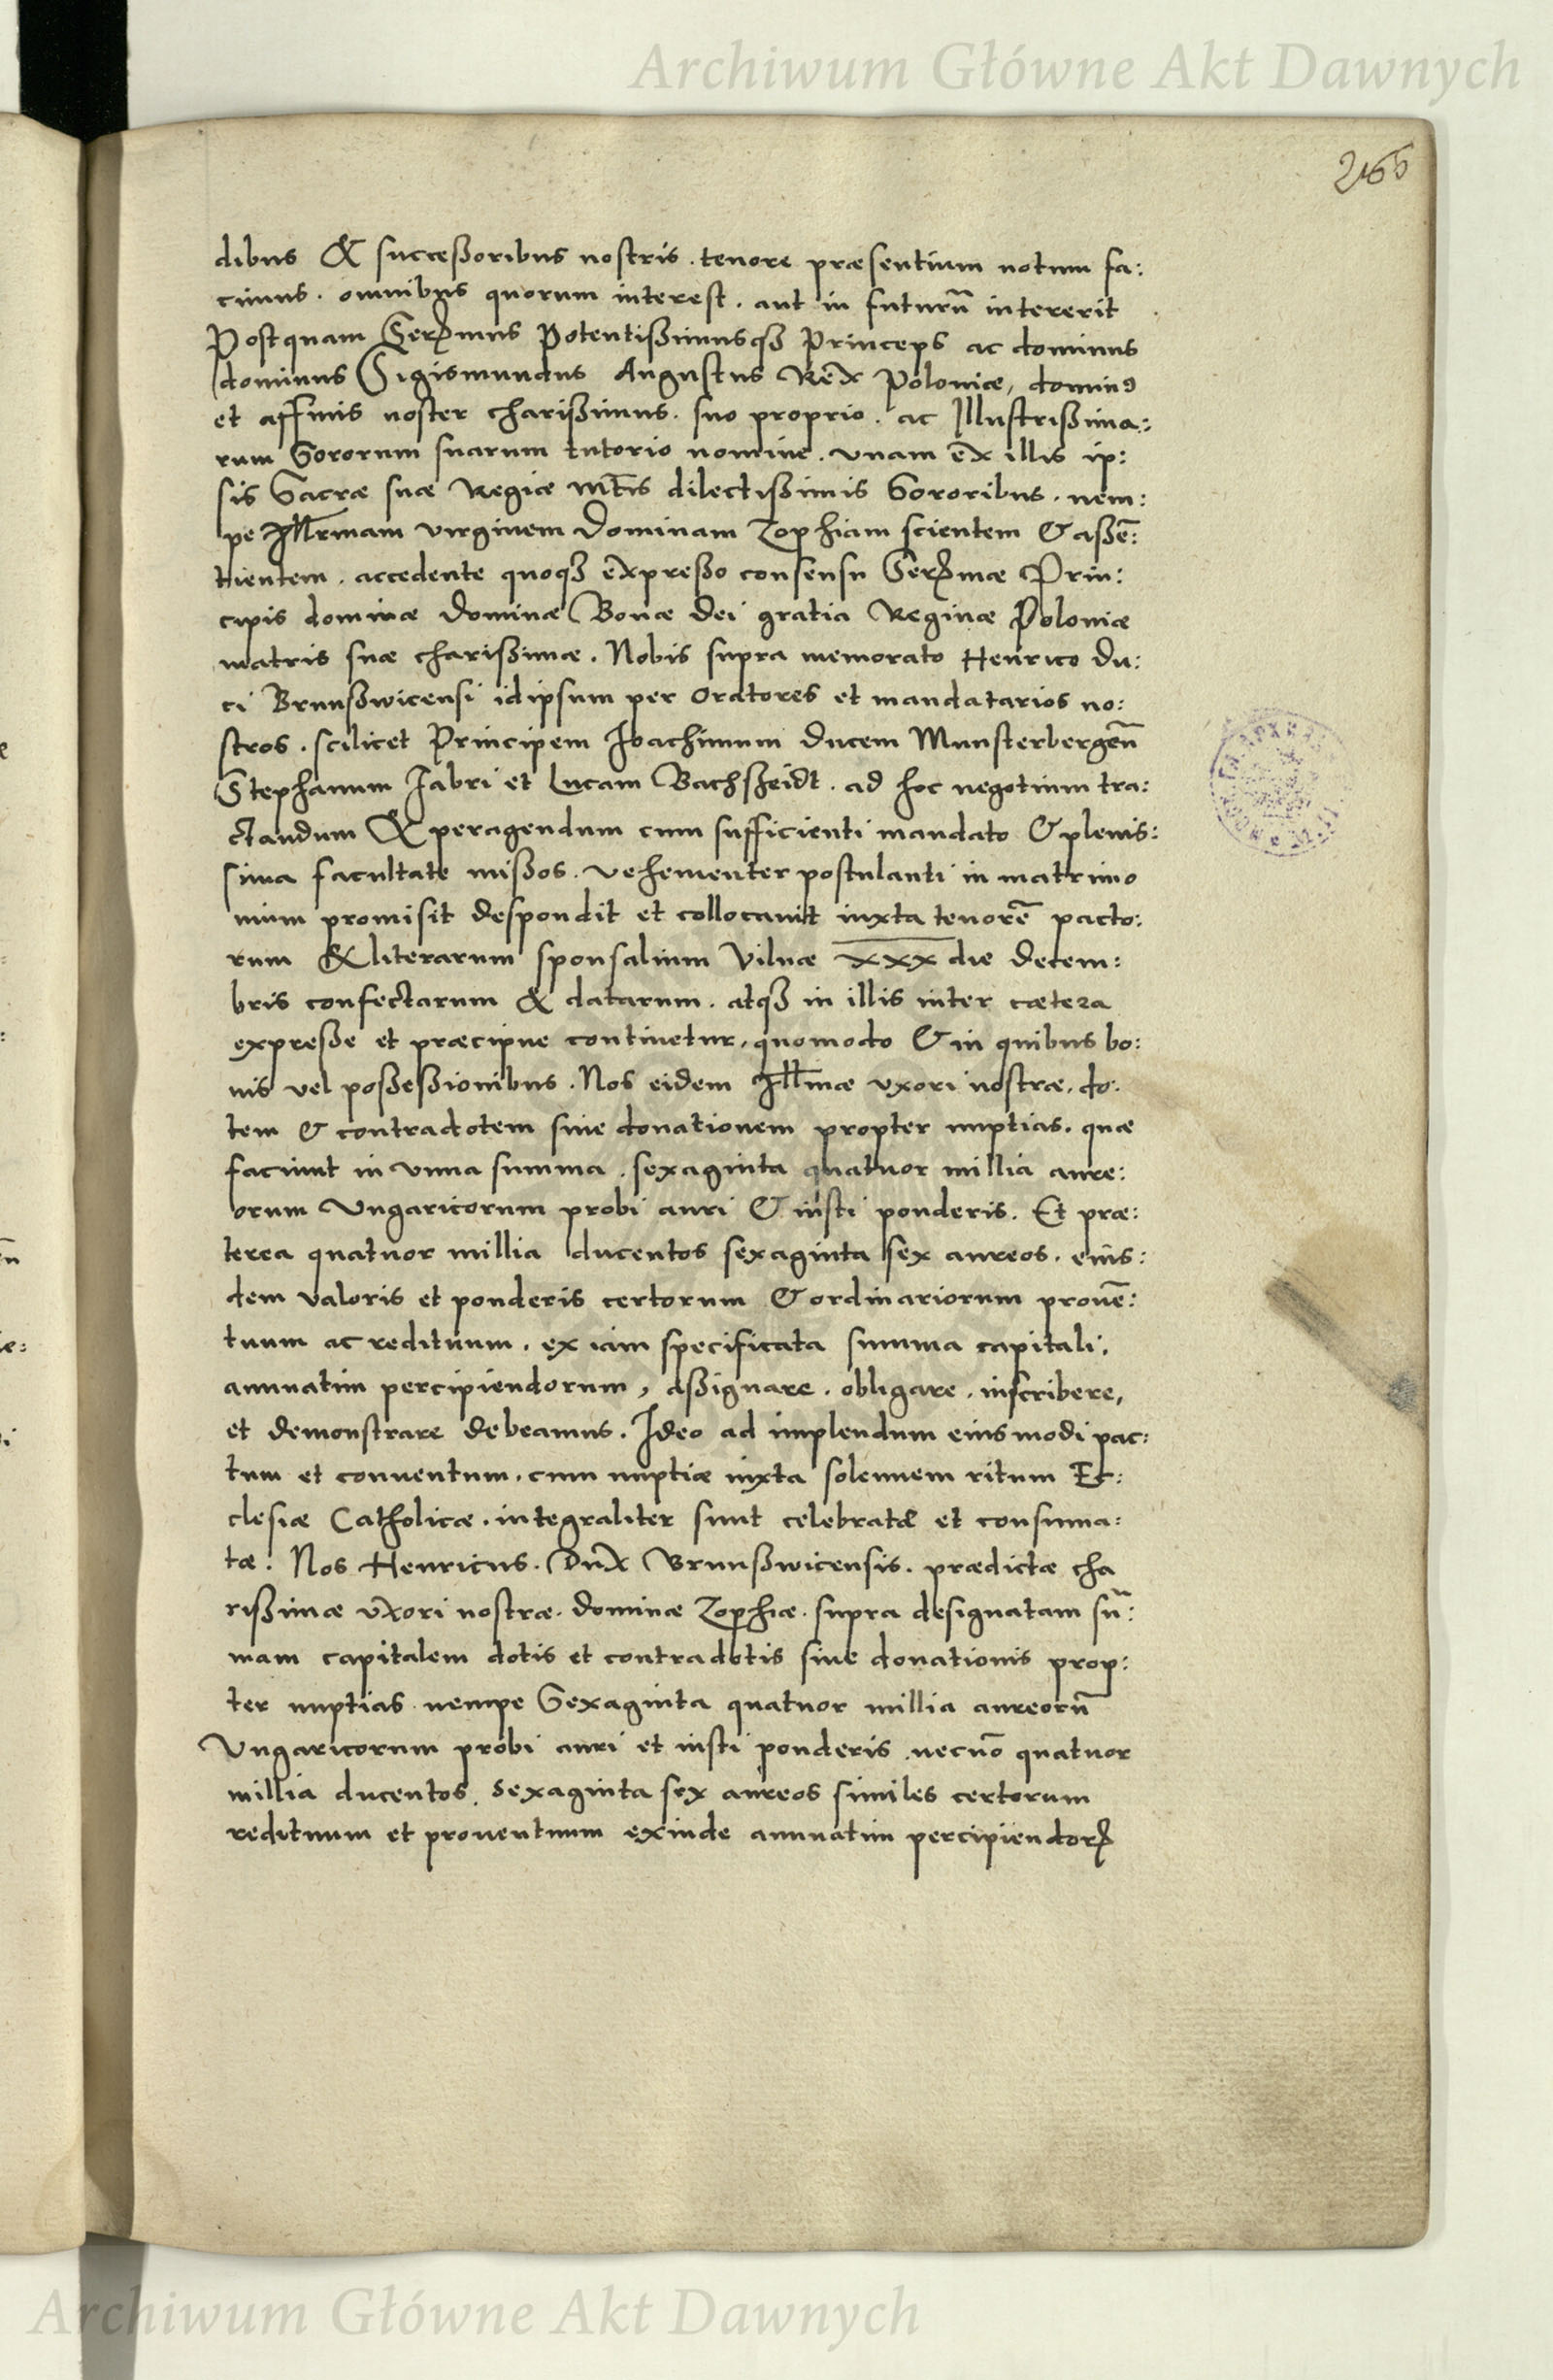 Archiwum Główne Akt Dawnych
266
dibus & successoribus nostris. tenore præsentium notum fa:
cimus. omnibus quorum interest. aut in futurū intererit
Postquam Serꝫmus Potentissimusqꝫ Princeps ac dominus
dominus Sigismundus Augustus Rex Poloniæ, dominꝰ
et affinis noster charissimus. suo proprio. ac Illustrissima:
rum Sororum suarum tutorio nomine. vnam ex illis ip:
sis Sacræ suæ Regiæ Mt̄is dilectissimis Sororibus. nem:
pe Illr̄mam virginem Dominam Zophiam scientem & assē:
tientem. accedente quoqꝫ expresso consensu Serꝫmæ Prin:
cipis dominæ Dominæ Bonæ Dei gratia Reginæ Poloniæ
matris suæ charissimæ. Nobis supra memorato Henrico Du:
ci Brunsswicensi idipsum per Oratores et mandatarios no:
stros. scilicet Principem Ioachimum Ducem Munsterbergen̄
Stephanum Fabri et Lucam Bachsseidt. ad hoc negotium tra:
ctandum & peragendum cum sufficienti mandato & plenis:
sima facultate missos. vehementer postulanti in matrimo
nium promisit despondit et collocauit iuxta tenorē pacto:
rum & literarum sponsalium Vilnæ XXX die Decem:
bris confectarum & datarum. atqꝫ in illis inter cætera
expresse et præcipue continetur, quomodo & in quibus bo:
nis vel possessionibus. Nos eidem Ill̄mæ vxori nostræ. do:
tem & contradotem siue donationem propter nuptias. quæ
faciunt in vnna summa. sexaginta quatuor millia aure:
orum Vngaricorum probi auri & iusti ponderis. Et præ:
terea quatuor millia ducentos sexaginta sex aureos. eius:
dem valoris et ponderis certorum & ordinariorum prouē:
tuum ac redituum. ex iam specificata summa capitali,
annuatim percipiendorum, assignare. obligare. inscribere,
et demonstrare debeamus. Ideo ad implendum eiusmodi pac:
tum et conuentum. cum nuptiæ iuxta solennem ritum Ec:
clesiæ Catholicæ. integraliter sunt celebratæ et consuma:
tæ. Nos Henricus. Dux Brunsswicensis. prædictæ cha
rissimæ vxori nostræ. dominæ Zophiæ. supra designatam sū:
mam capitalem dotis et contradotis siue donationis prop:
ter nuptias nempe Sexaginta quatuor millia aureorū
Vngaricorum probi auri et iusti ponderis necnō quatuor
millia ducentos. Sexaginta sex aureos similes certorum
redituum et prouentuum exinde annuatim percipiendorꝫ
Archiwum Główne Akt Dawnych